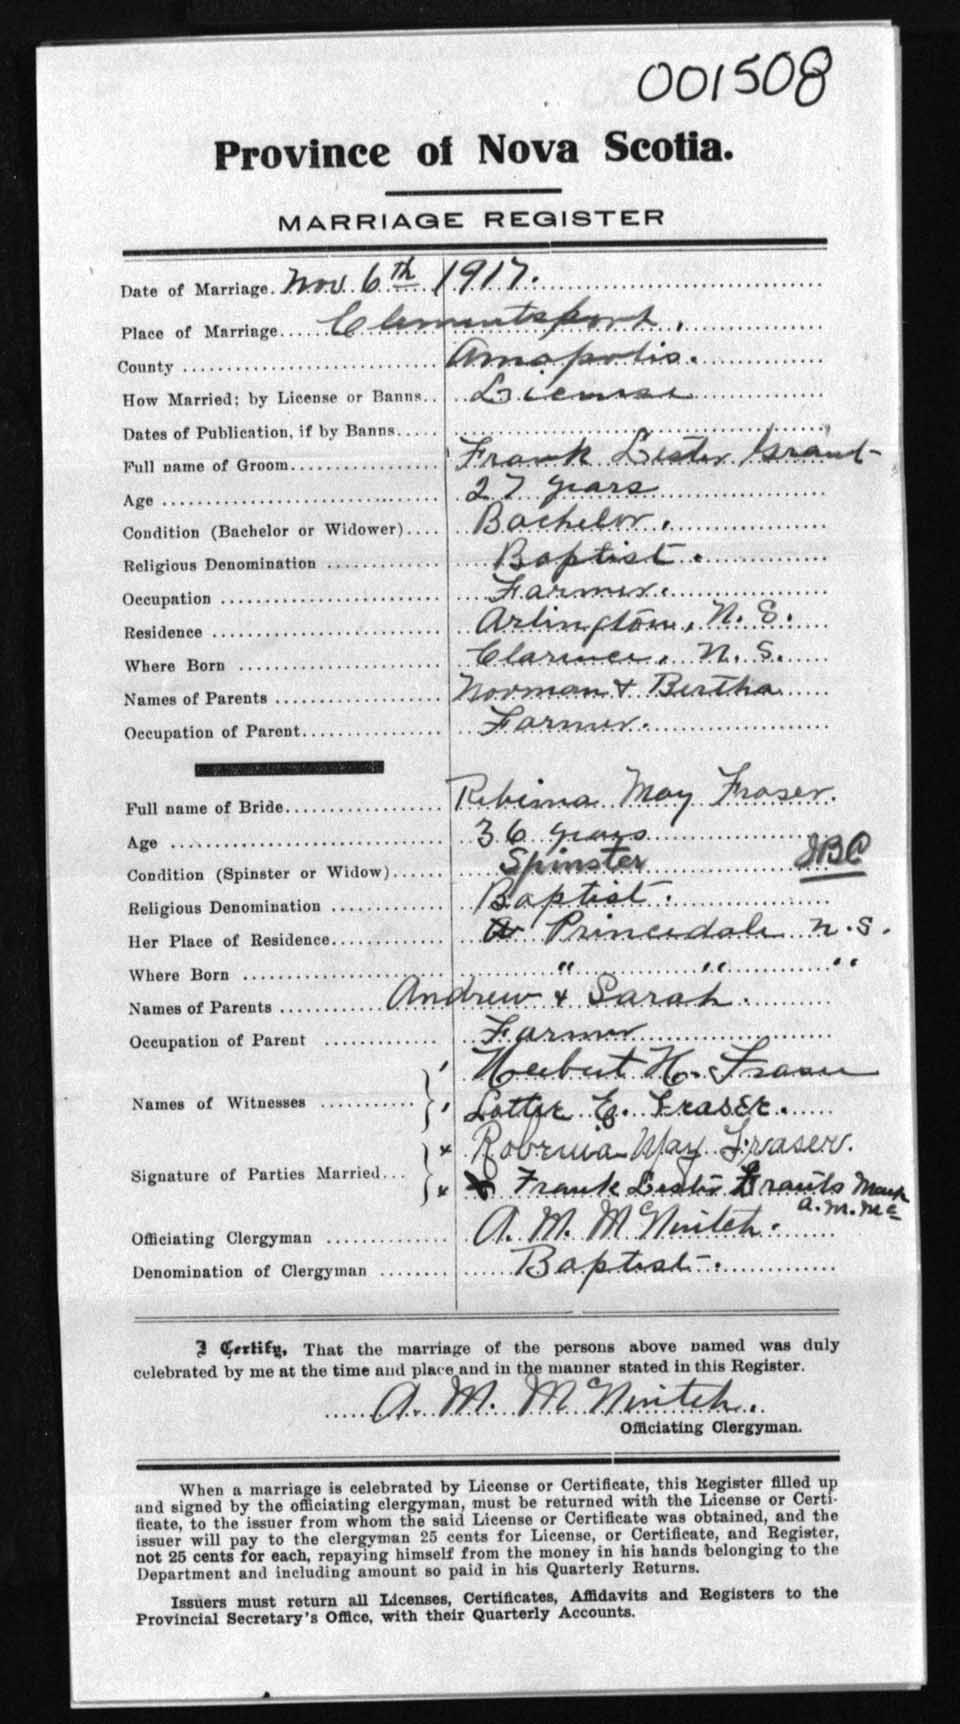 001508
Province of Nova Scotia.
MARRIAGE REGISTER
Date of Marriage. Nov. 6th 1917.
Place of Marriage Clementsport,
County Annapolis.
How Married; by License or Banns License
Dates of Publication, if by Banns
Full name of Groom Frank Lester Grant
Age 27 years
Condition (Bachelor or Widower) Bachelor.
Religious Denomination Baptist.
Occupation Farmer.
Residence Arlington, N. S.
Where Born Clarence, N. S.
Names of Parents Norman & Bertha
Occupation of Parent Farmer.
Full name of Bride Rebina May Fraser.
Age 36 years
Condition (Spinster or Widow) Spinster JBC
Religious Denomination Baptist.
Her Place of Residence Princedale N. S.
Where Born " " "
Names of Parents Andrew & Sarah.
Occupation of Parent Farmer
Herbert H. Fraser
Names of Witnesses Lottie E. Fraser.
x May Fraser.
Signature of Parties Married x Frank Lester Grants Mark
A. M. Mc
Officiating Clergyman A. M. McNintch.
Denomination of Clergyman Baptist.
I Certify, That the marriage of the persons above named was duly
celebrated by me at the time and place and in the manner stated in this Register.
A. M. McNintch.
Officiating Clergyman.
When a marriage is celebrated by License or Certificate, this Register filled up
and signed by the officiating clergyman, must be returned with the License or Certi-
ficate, to the issuer from whom the said License or Certificate was obtained, and the
issuer will pay to the clergyman 25 cents for License, or Certificate, and Register,
not 25 cents for each, repaying himself from the money in his hands belonging to the
Department and including amount so paid in his Quarterly Returns.
Issuers must return all Licenses, Certificates, Affidavits and Registers to the
Provincial Secretary's Office, with their Quarterly Accounts.